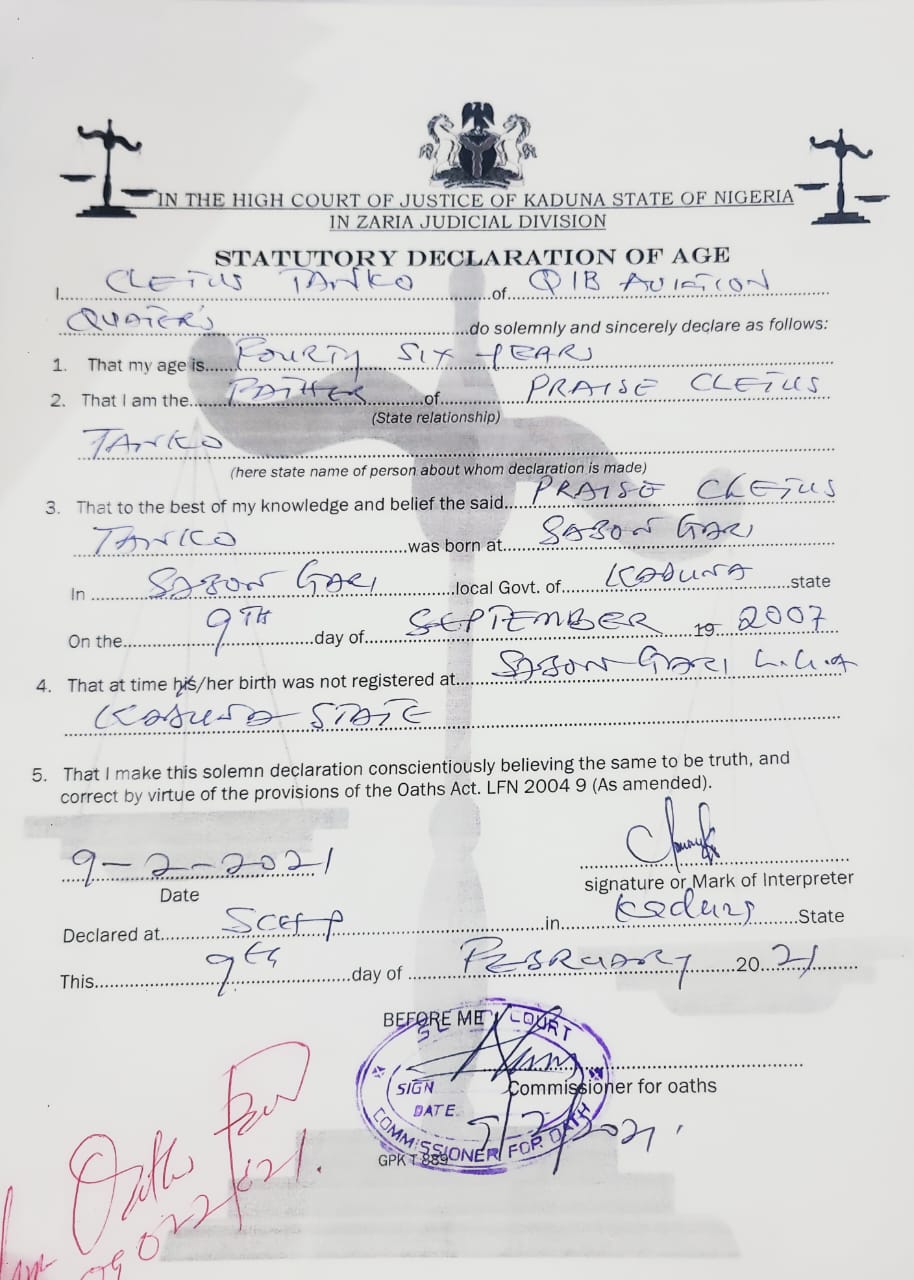 IN THE HIGH COURT OF JUSTICE OF KADUNA STATE OF NIGERIA
IN ZARIA JUDICIAL DIVISION
STATUTORY DECLARATION OF AGE
I.....CLETUS TANKO.....of QIB AVIATION
QUATER'S.....do solemnly and sincerely declare as follows:
1. That my age is.....FOURTY SIX YEARS
2. That I am the.....FATHER.....of PRAISE CLETUS
(State relationship)
TANKO
(here state name of person about whom declaration is made)
3. That to the best of my knowledge and belief the said....PRAISE CLETUS
TANKO.....was born at.....SABON GARI
In.....SABON GARI.....local Govt. of.....KADUNA.....state
On the.....9TH.....day of.....SEPTEMBER 19 2007
4. That at time his/her birth was not registered at.....SABON GARI L.G.A
KADUNA STATE
5. That I make this solemn declaration conscientiously believing the same to be truth, and
correct by virtue of the provisions of the Oaths Act. LFN 2004 9 (As amended).
9-2-2021
Date
signature or Mark of Interpreter
Declared at.....in Kaduna.....State
This.....9th.....day of.....FEBRUARY.....20..21
BEFORE ME
COURT
SIGN
Commissioner for oaths
DATE
9/2/2021.
COMMISSIONER FOR OATH
GPK T 889
Oath Paid
09022021.